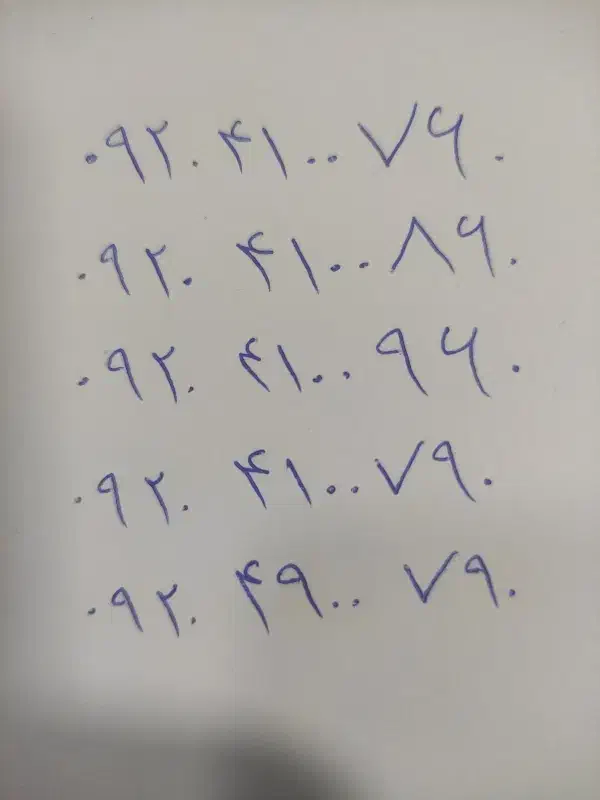 ۰۹۲۰ ۴۱۰۰ ۷۶۰
۰۹۲۰ ۴۱۰۰ ۸۶۰
۰۹۲۰ ۴۱۰۰ ۹۶۰
۰۹۲۰ ۴۱۰۰ ۷۹۰
۰۹۲۰ ۴۹۰۰ ۷۹۰